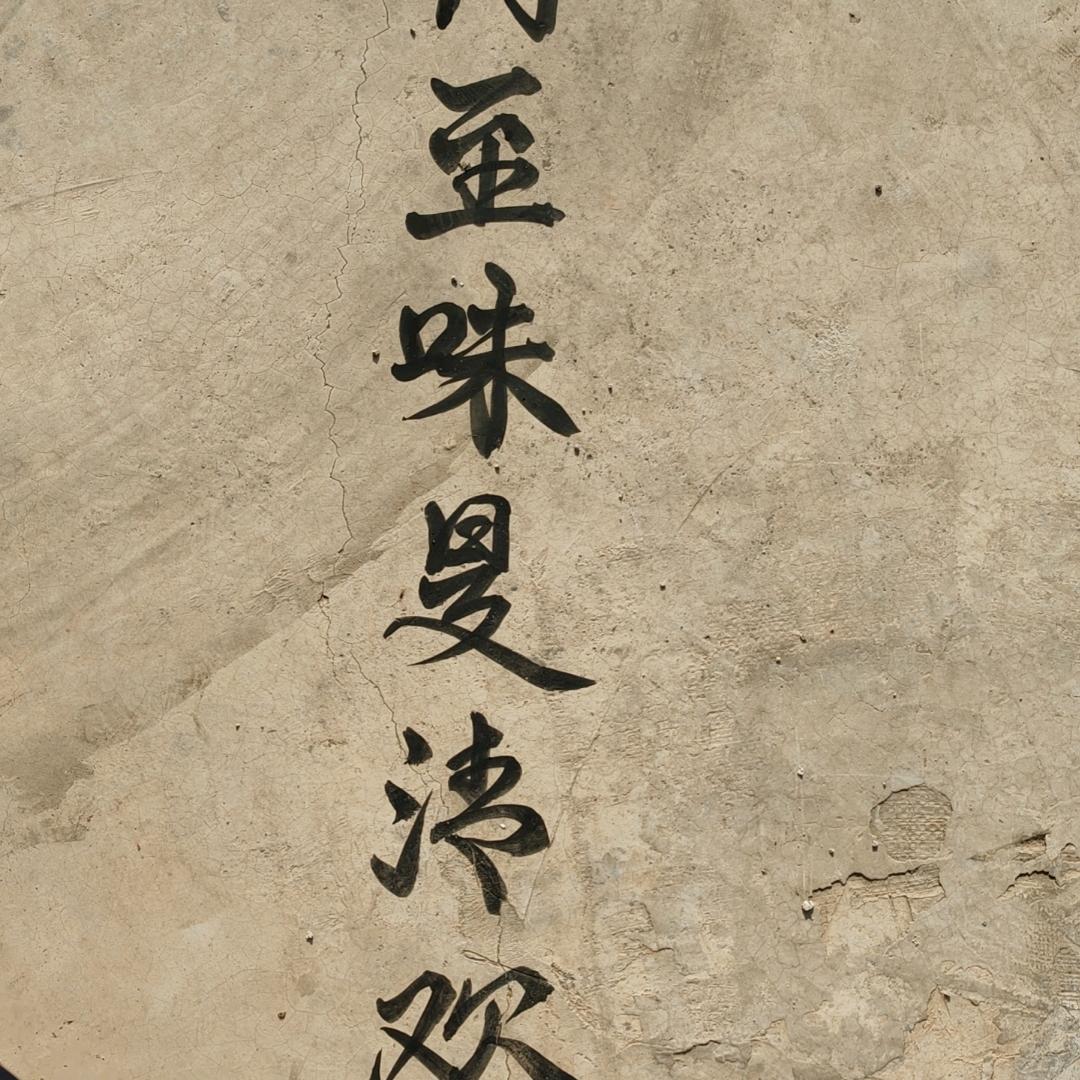 至味是清欢